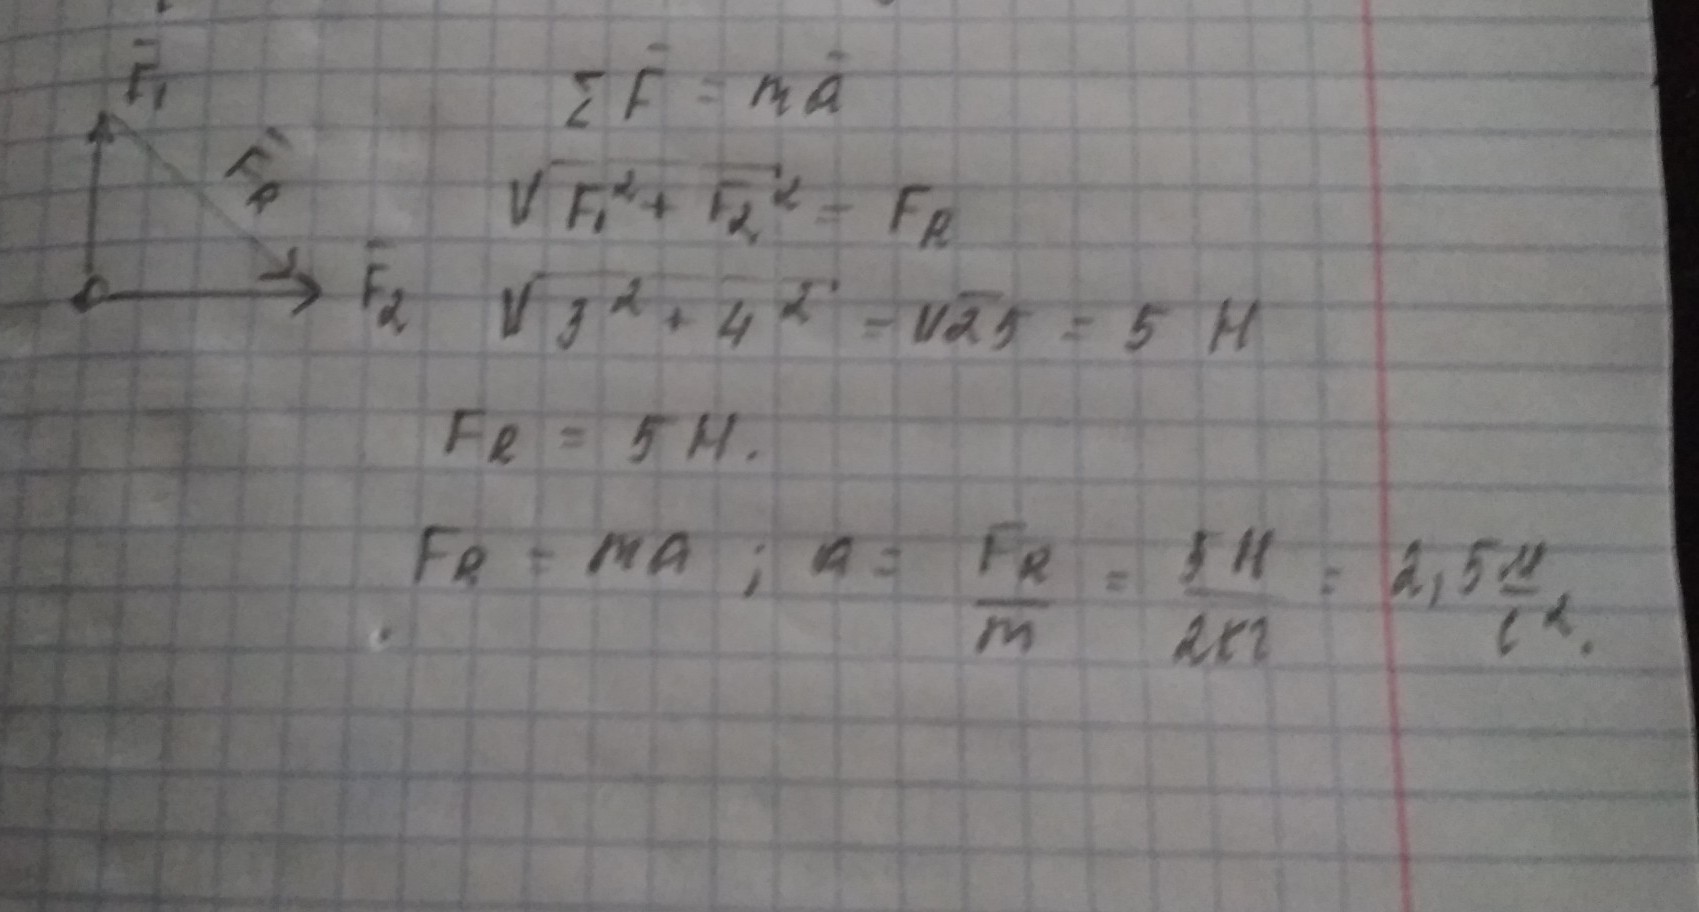 F̄₁
ΣF̄ = mā
F̄_R
√(F₁² + F₂²) = F_R
F̄₂
√(3² + 4²) = √25 = 5 Н
F_R = 5 Н.
F_R = ma ; a = F_R/m = 5 Н/2кг = 2,5 м/с².